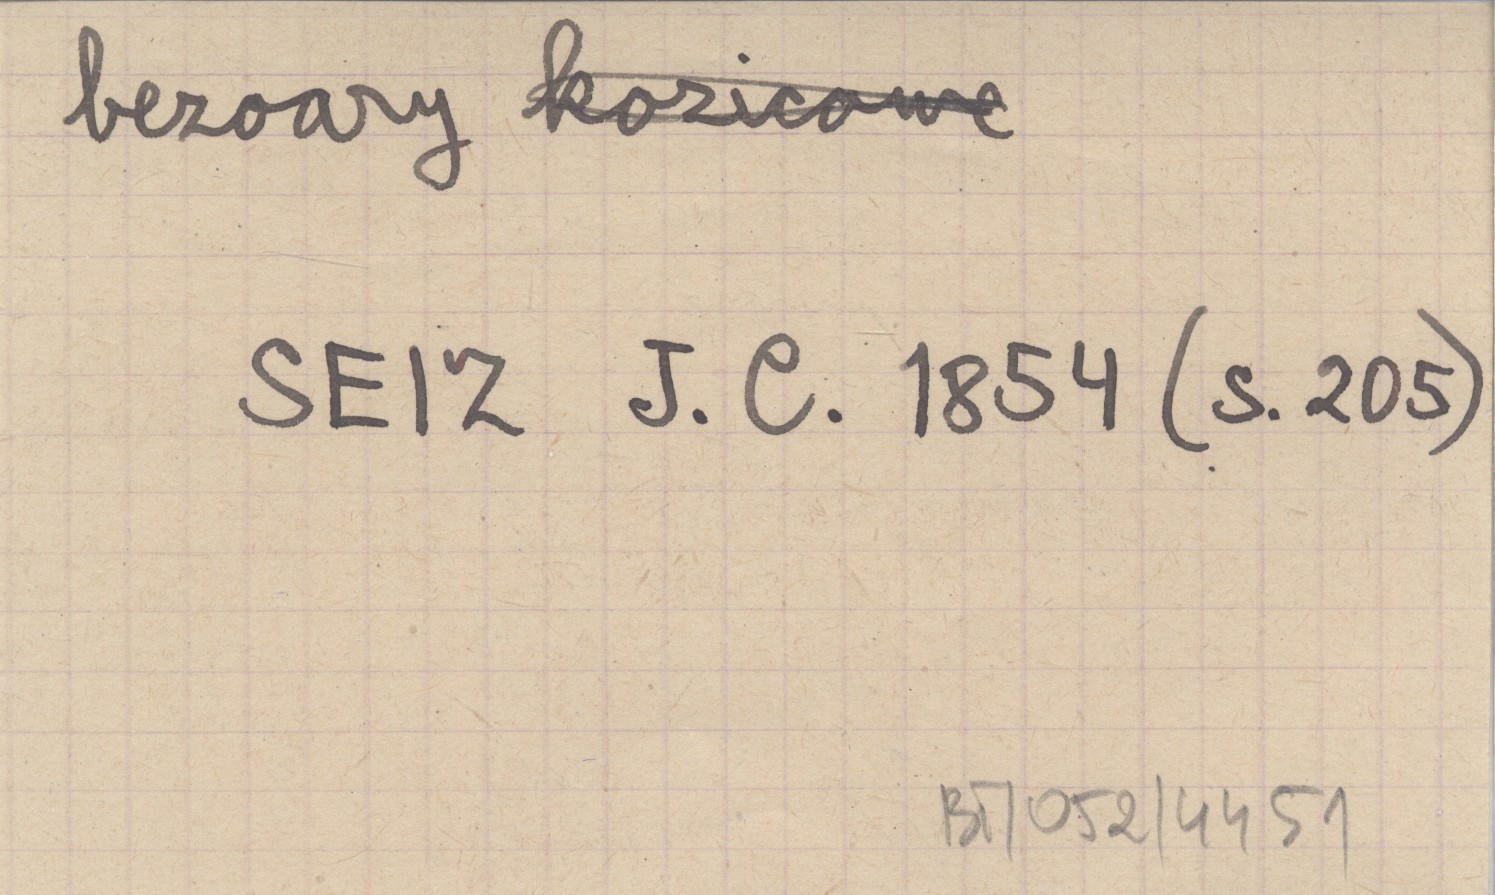 bezoary kozicowe
SEIZ J. C. 1854 (s. 205)
BT/052/4451